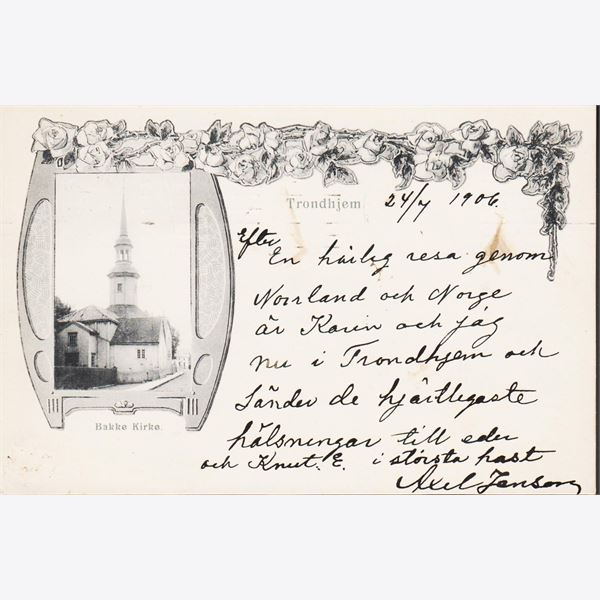 Trondhjem 24/7 1906.
Efter
En härlig resa genom
Norrland och Norge
är Karin och jag
nu i Trondhjem och
Sänder de hjärtlegaste
hälsningar till eder
och Knut. E. i största hast
Axel Jansson
Bakke Kirke.